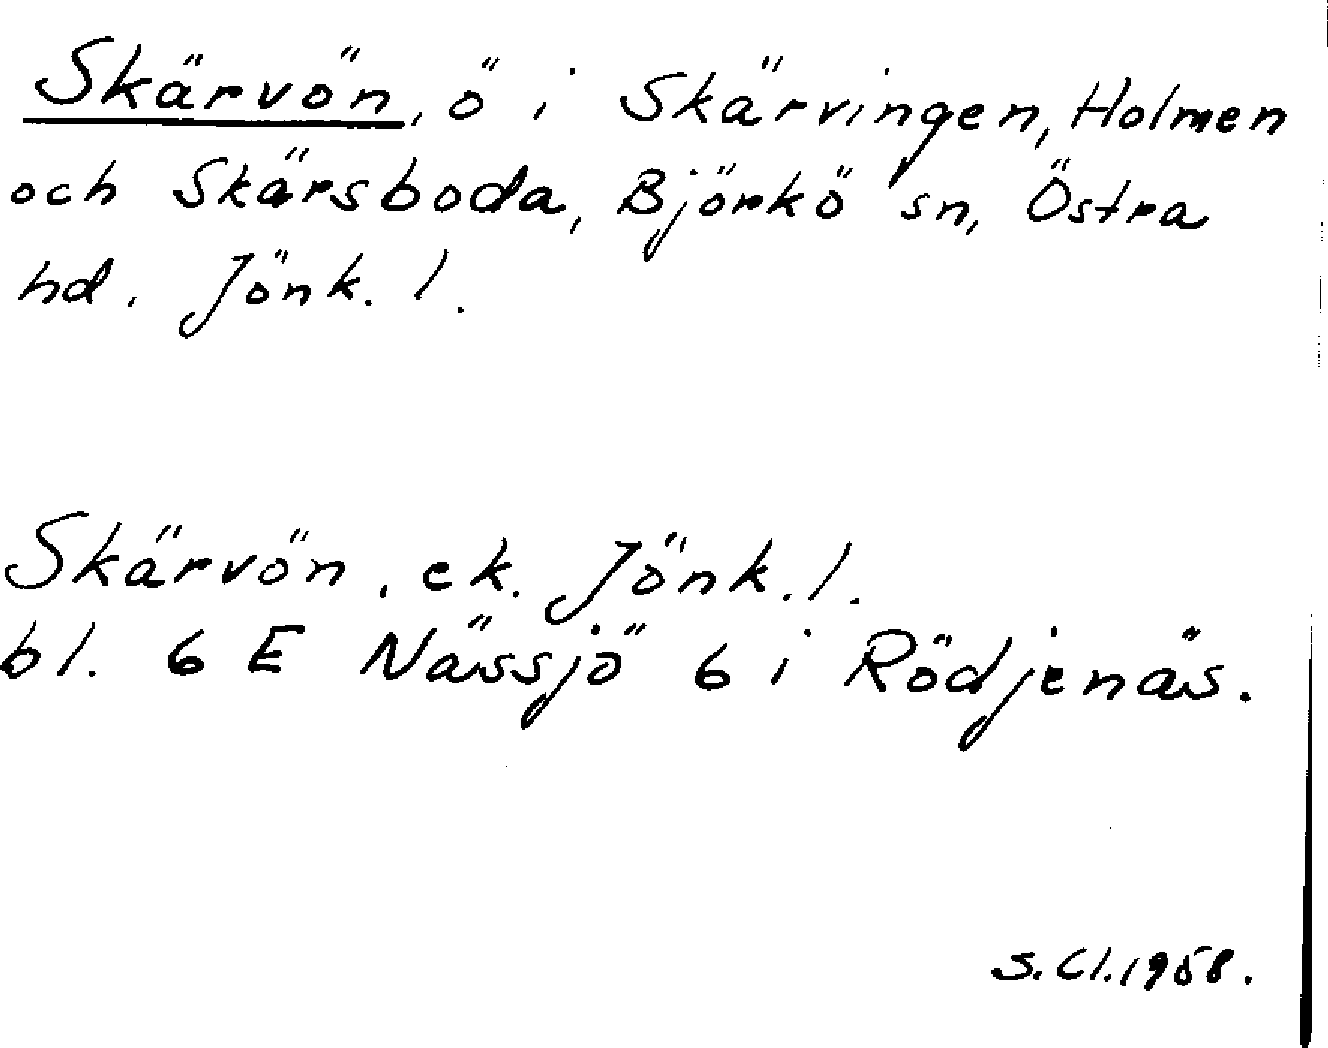 Skärvön, ö i Skärvingen, Holmen
och Skärsboda, Björkö sn, Östra
hd. Jönk. l.
Skärvön, ek. Jönk. l.
bl. 6 E Nässjö 6 i Rödjenäs.
S. Cl. 1958.